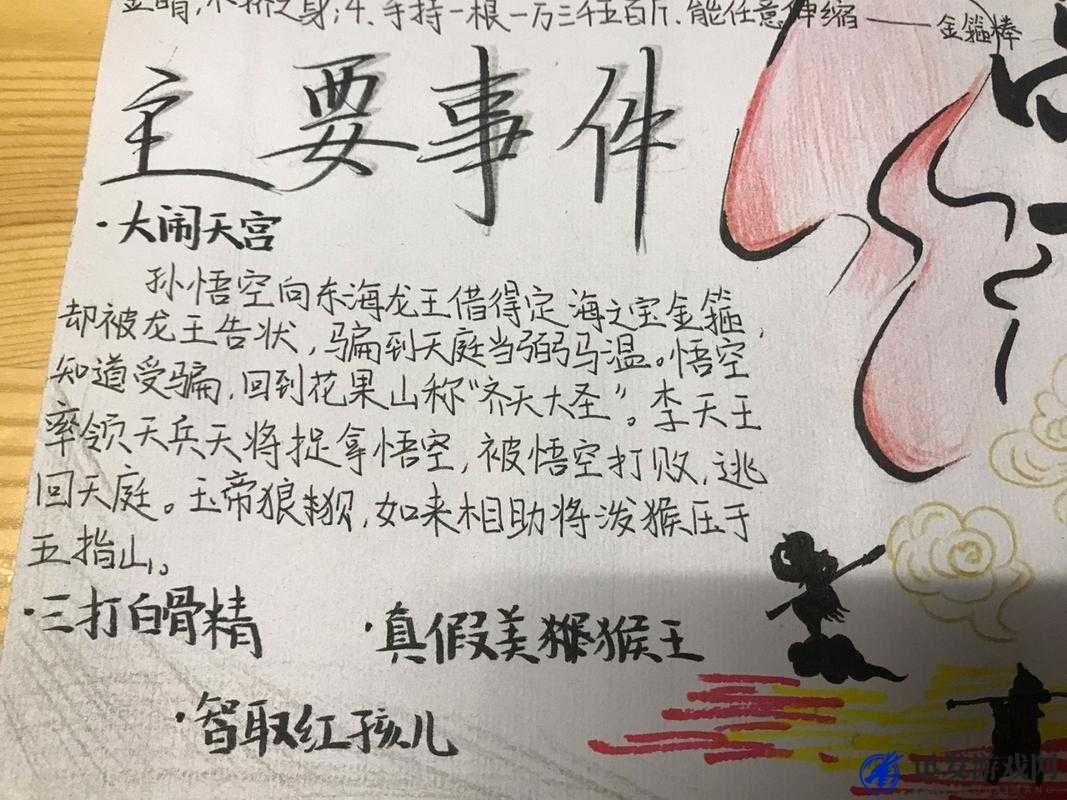 金睛,不坏之身;4.手持一根一万三千五百斤、能任意伸缩——金箍棒
主要事件
·大闹天宫
孙悟空向东海龙王借得定海之宝金箍,
却被龙王告状,骗到天庭当弼马温。悟空
知道受骗,回到花果山称“齐天大圣”。李天王
率领天兵天将捉拿悟空,被悟空打败,逃
回天庭。玉帝狼狈,如来相助将泼猴压于
五指山。
·三打白骨精
·真假美猴王
·智取红孩儿